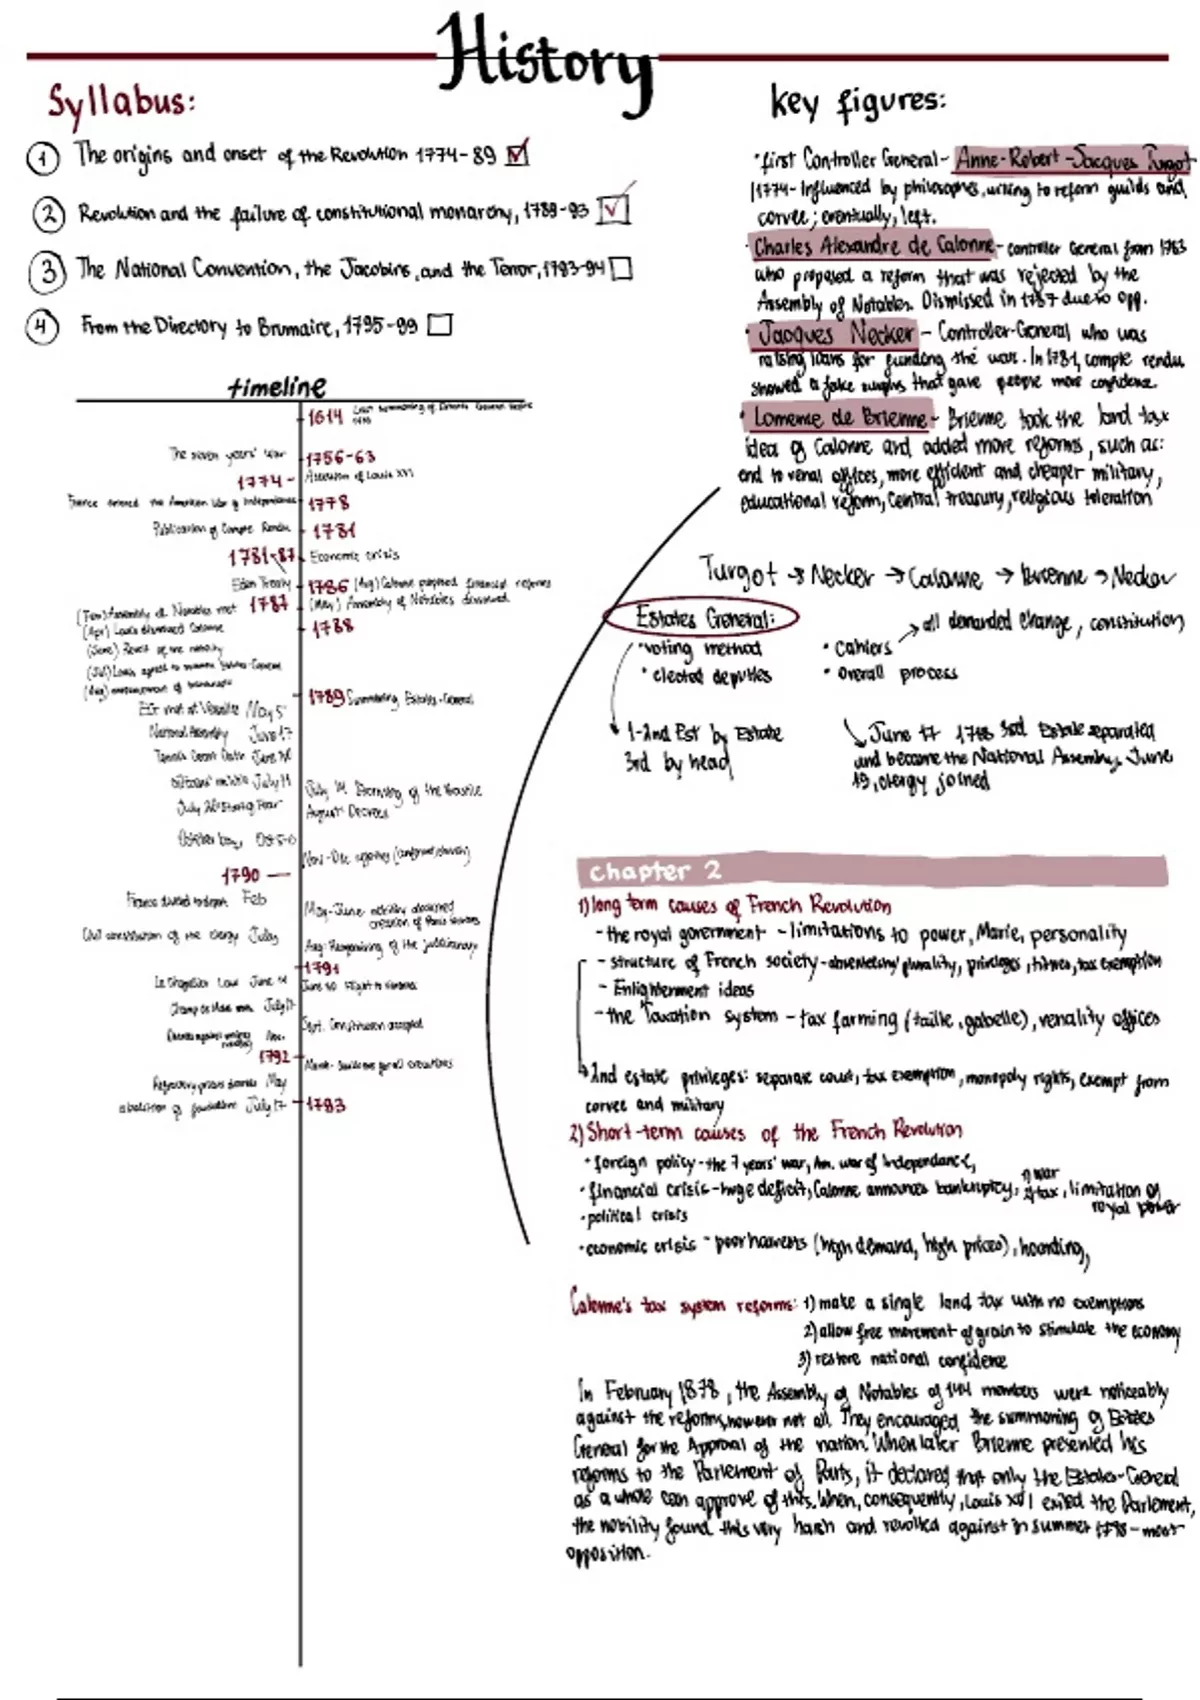 History
Syllabus:
1 The origins and onset of the Revolution 1774-89
2 Revolution and the failure of constitutional monarchy, 1789-93
3 The National Convention, the Jacobins, and the Terror, 1793-94
4 From the Directory to Brumaire, 1795-99
timeline
1614 Last summoning of Estates General before
The seven years' war 1756-63
1774 - Accession of Louis XVI
France entered the American War of Independence 1778
Publication of Compte Rendu 1781
1781-87 Economic crisis
Eden Treaty 1786 (Aug) Calonne proposed financial reforms
(Feb) Assembly of Notables met 1787 (May) Assembly of Notables dissolved
(Apr) Louis dismissed Calonne 1788
(June) Revolt of the nobility
(Jul) Louis agreed to summon Estates-General
(Aug) announcement of
1789 Summoning Estates-General
EG met at Versailles May 5
National Assembly June 17
Tennis Court Oath June 20
citizens' militia July 14
July 14 Storming of the Bastille
July 20 Great Fear
August Decrees
October Days Oct 5-6
Nov-Dec
1790
France divided to depart. Feb
May-June nobility abolished
creation of Paris sections
Civil constitution of the clergy July
Aug: Reorganising of the judiciary
1791
Le Chapelier Law June 14
June 20 Flight to Varennes
Champ de Mars mas. July 17
Sept. Constitution accepted
1792
March - Guillotine for all executions
Refractory priests May
abolition of feudalism July 17 1793
key figures:
• first Controller General - Anne-Robert-Jacques Turgot
1774 - Influenced by philosophes, willing to reform guilds and
corvee; eventually, left.
• Charles Alexandre de Calonne - controller General from 1783
who proposed a reform that was rejected by the
Assembly of Notables. Dismissed in 1787 due to opp.
• Jacques Necker - Controller-General, who was
raising loans for funding the war. In 1781, compte rendu
showed a fake surplus that gave people more confidence.
• Lomenie de Brienne - Brienne took the land tax
idea of Calonne and added more reforms, such as:
end to venal offices, more efficient and cheaper military,
educational reform, Central treasury, religious toleration
Turgot → Necker → Calonne → Brienne → Necker
Estates General:
• voting method
• elected deputies
• Cahiers → all demanded change, constitution
• Overall process
1-2nd Est by Estate
3rd by head
June 17 1788 3rd Estate separated
and became the National Assembly. June
19, clergy joined
chapter 2
1) long term causes of French Revolution
- the royal government - limitations to power, Marie, personality
- structure of French society - absenteeism/plurality, privileges, tithes, tax exemption
- Enlightenment ideas
- the Taxation system - tax farming (taille, gabelle), venality offices
2nd estate privileges: separate court, tax exemption, monopoly rights, exempt from
corvee and military
2) Short-term causes of the French Revolution
• foreign policy - the 7 years' war, Am. war of Independance,
• financial crisis - huge deficit, Calonne announces bankruptcy, ↑ war ↑ tax, limitation of
royal power
• political crisis
• economic crisis - poor harvests (high demand, high prices), hoarding,
Calonne's tax system reforms: 1) make a single land tax with no exemptions
2) allow free movement of grain to stimulate the economy
3) restore national confidence
In February 1878, the Assembly of Notables of 144 members were noticeably
against the reforms, however not all. They encouraged the summoning of Estates
General for the Approval of the nation. When later Brienne presented his
reforms to the Parlement of Paris, it declared that only the Estates-General
as a whole can approve of this. When, consequently, Louis XVI exiled the Parlement,
the nobility found this very harsh and revolted against in summer 1788 - most
opposition.